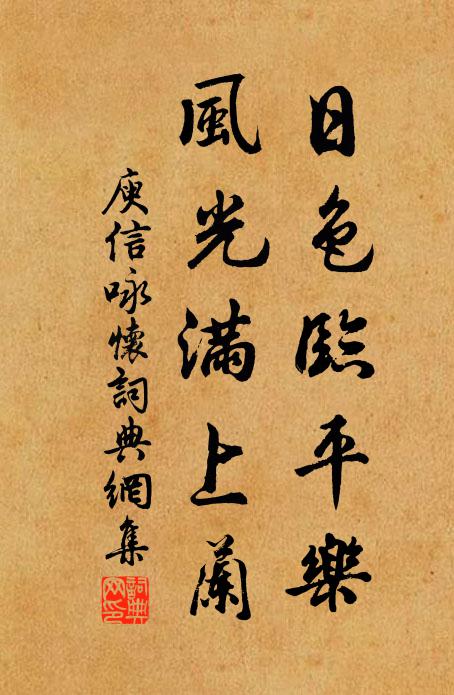 日色臨平樂
風光滿上蘭
庾信詠懷詞典網集
詞典网印